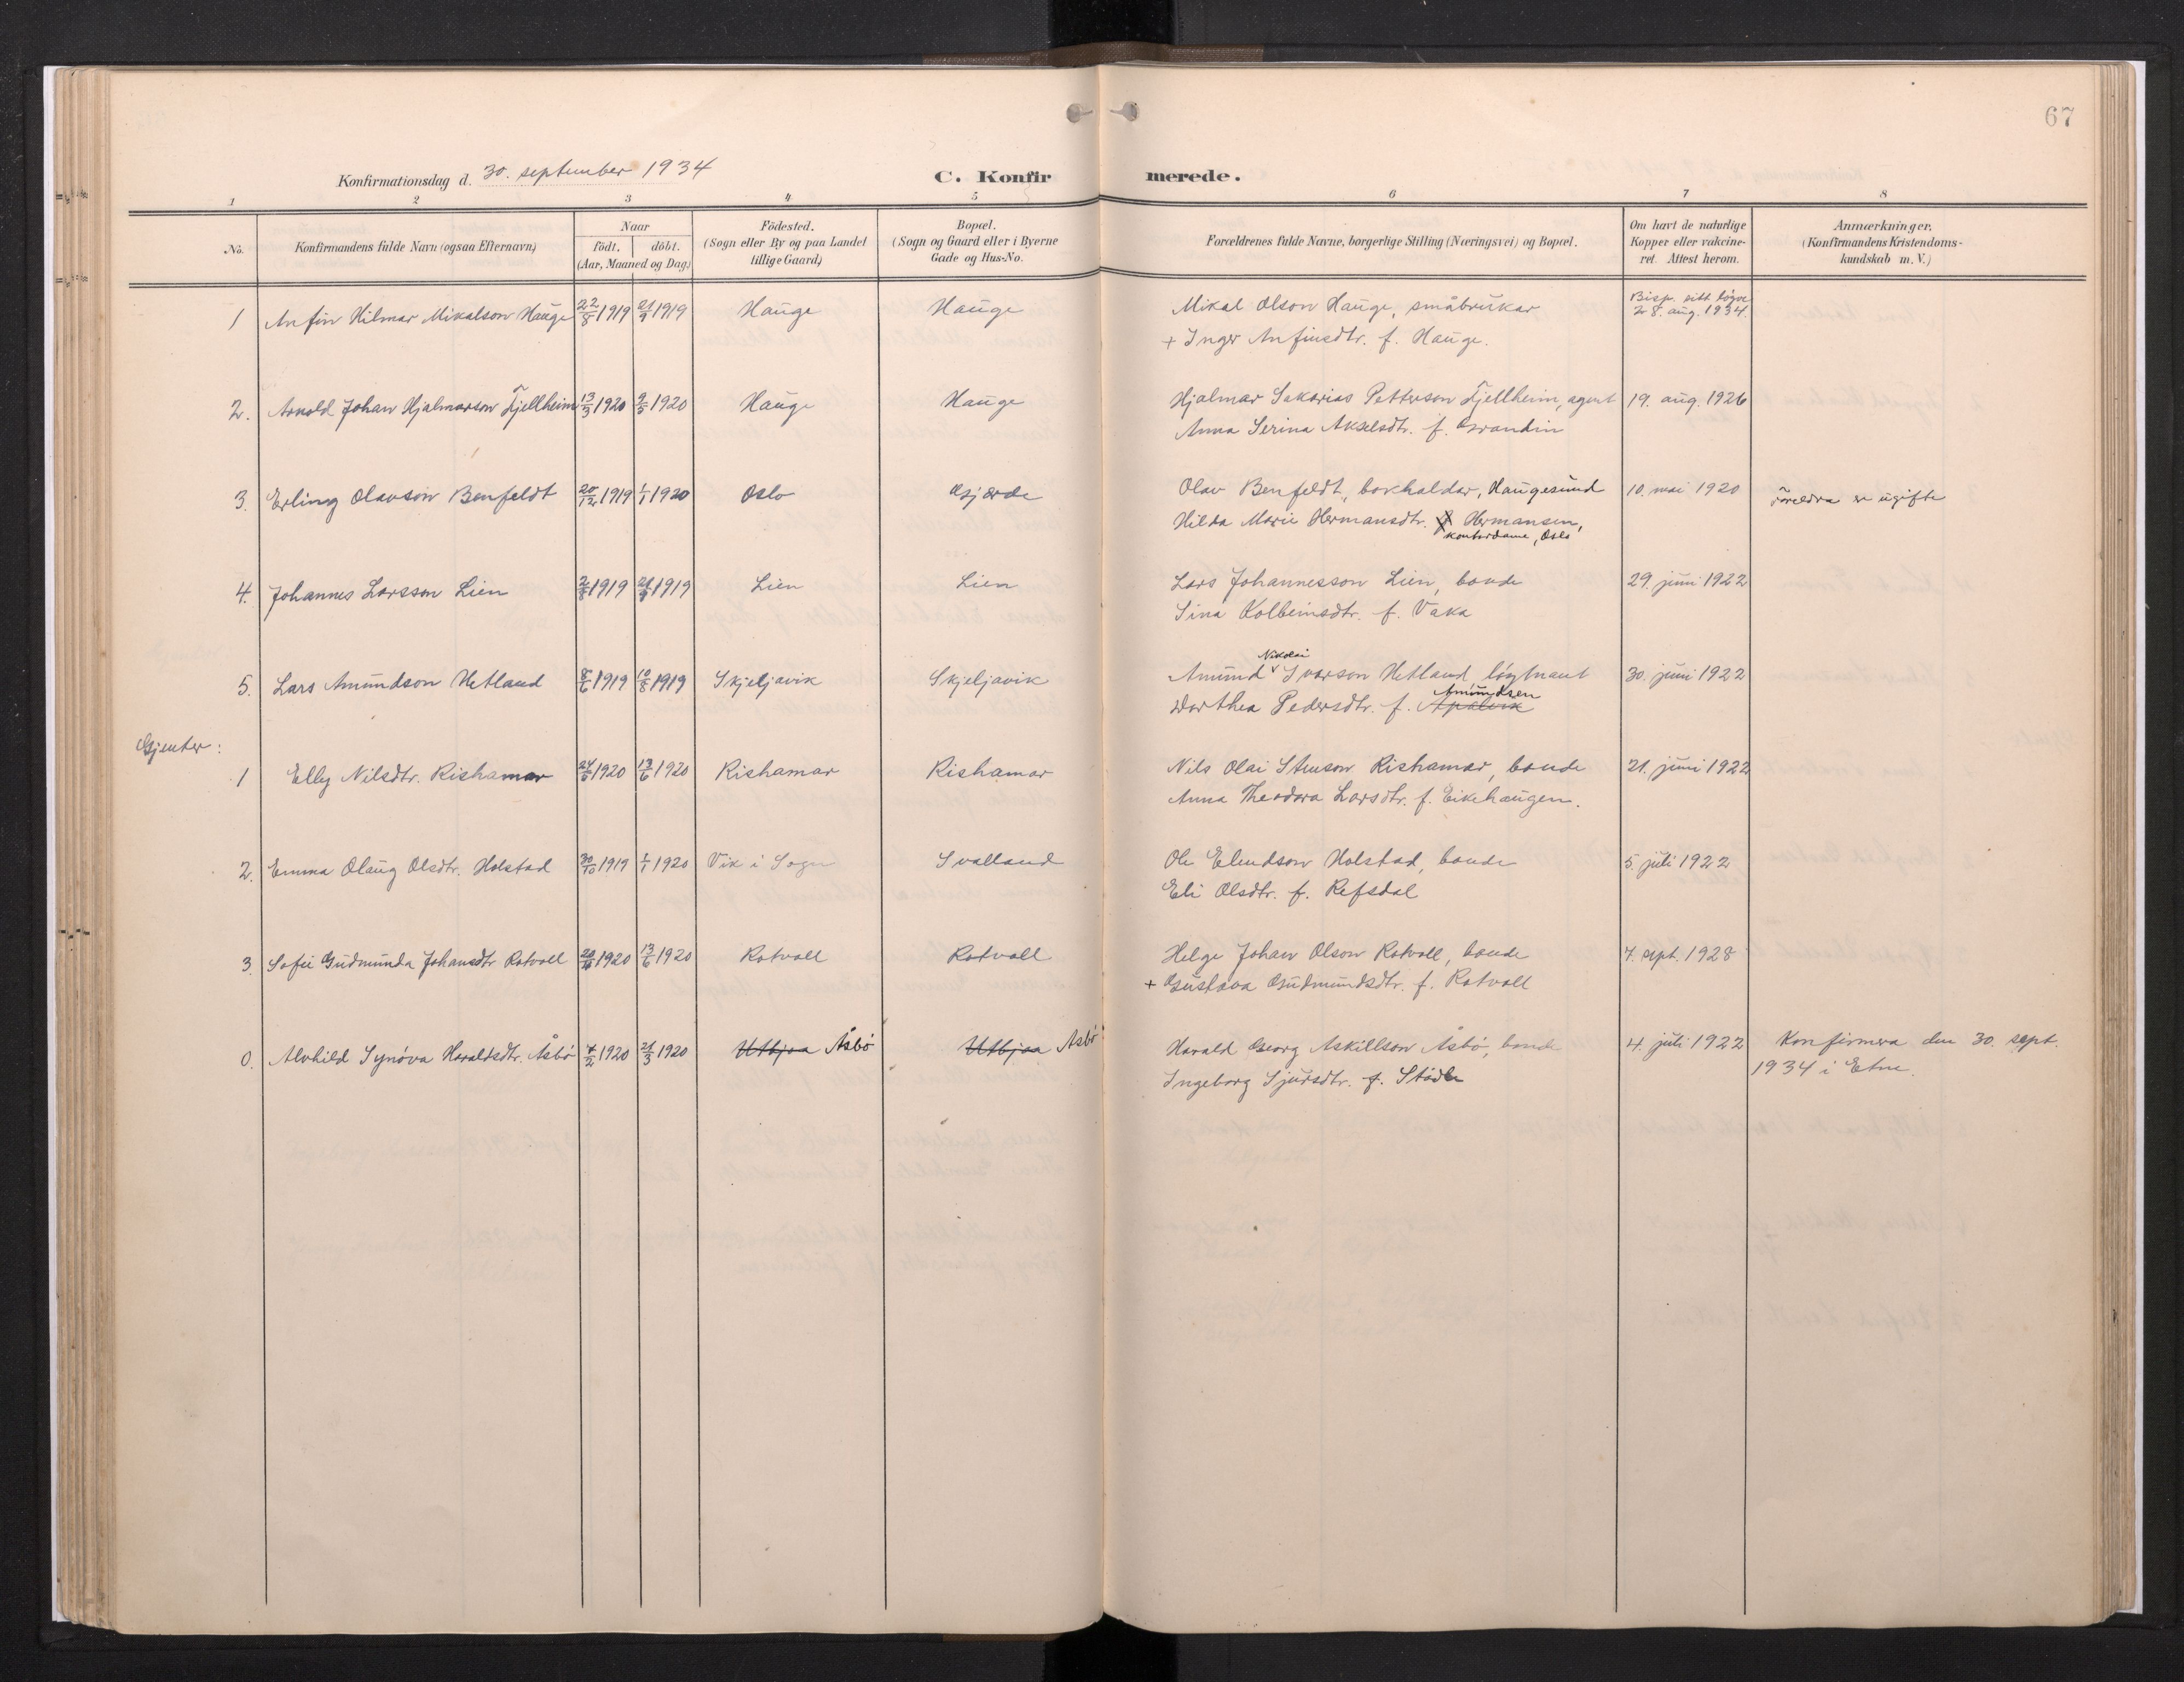 67
Konfirmationsdag d. 30. september 1934
C. Konfirmerede.
1 2 3 4 5 6 7 8
No.
Konfirmandens fulde Navn (ogsaa Efternavn)
Naar
født. døbt.
(Aar, Maaned og Dag)
Födested.
(Sogn eller By og paa Landet
tillige Gaard)
Bopæl.
(Sogn og Gaard eller i Byerne
Gade og Hus-No.
Forældrenes fulde Navne, borgerlige Stilling (Næringsvei) og Bopæl.
Om havt de naturlige
Kopper eller vakcine-
ret. Attest herom.
Anmærkninger.
(Konfirmandens Kristendoms-
kundskab m. V.)
1 Anfin Hilmar Mikalson Hauge 22/8 1919 21/9 1919 Hauge Hauge Mikal Olson Hauge, småbrukar Bisp. sitt løyve
28. aug. 1934.
+ Inger Anfinsdtr. f. Hauge.
2. Arnold Johan Hjalmarson Fjellheim 13/3 1920 9/5 1920 Hauge Hauge Hjalmar Sakarias Petterson Fjellheim, agent 19. aug. 1926
Anna Serina Akselsdtr. f. Grandin
3. Erling Olavson Benfeldt 20/12 1919 1/1 1920 Oslo Gjærde Olav Benfeldt, bokhaldar, Haugesund 10. mai 1920 Foreldra er ugifte
Hilda Marie Hermansdtr. f. Hermansen,
kontordame, Oslo
4. Johannes Larsson Lien 2/8 1919 21/9 1919 Lien Lien Lars Johannesson Lien, bonde 29. juni 1922
Sina Kolbeinsdtr. f. Vaka
Nikolai
5. Lars Amundson Hetland 8/6 1919 10/8 1919 Skjeljavik Skjeljavik Amund Ivarson Hetland løytnant 30. juni 1922
Amundsen
Dorthea Pedersdtr. f. Apalvik
Gjenter:
1 Elly Nilsdtr. Rishamar 24/5 1920 13/6 1920 Rishamar Rishamar Nils Olai Stenson Rishamar, bonde 21. juni 1922
Anna Theodora Larsdtr. f. Eikehaugen.
2. Emma Olaug Olsdtr. Holstad 30/10 1919 1/1 1920 Vik i Sogn Svalland Ole Elendson Holstad, bonde 5. juli 1922
Eli Olsdtr. f. Refsdal
3. Sofie Gudmunda Johansdtr Rotvoll 1920 13/6 1920 Rotvoll Rotvoll Helge Johan Olson Rotvoll, bonde 7. sept. 1928
+ Gustava Gudmundsdtr. f. Rotvoll
0. Alvhild Synøva Haraldsdtr. Åsbø 4/2 1920 21/3 1920 Utbjoa Åsbø Utbjoa Åsbø Harald Georg Askillson Åsbø, bonde 4. juli 1922 Konfirmera den 30. sept.
1934 i Etne.
Ingeborg Sjursdtr. f. Stødle